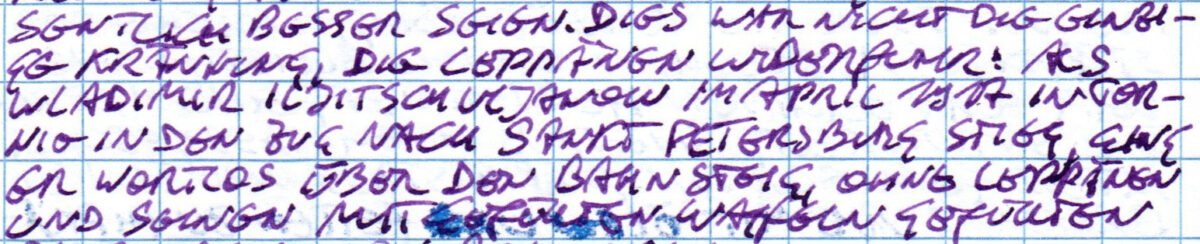 SENTLICH BESSER SEIEN. DIES WAR NICHT DIE EINZI-
GE KRÄNKUNG, DIE LEPPÄNEN WIDERFUHR: ALS
WLADIMIR ILJITSCH ULJANOW IM APRIL 1917 IN TOR-
NIO IN DEN ZUG NACH SANKT PETERSBURG STIEG, GING
ER WORTLOS ÜBER DEN BAHNSTEIG, OHNE LEPPÄNEN
UND SEINEN MIT WAFFELN GEFÜLLTEN